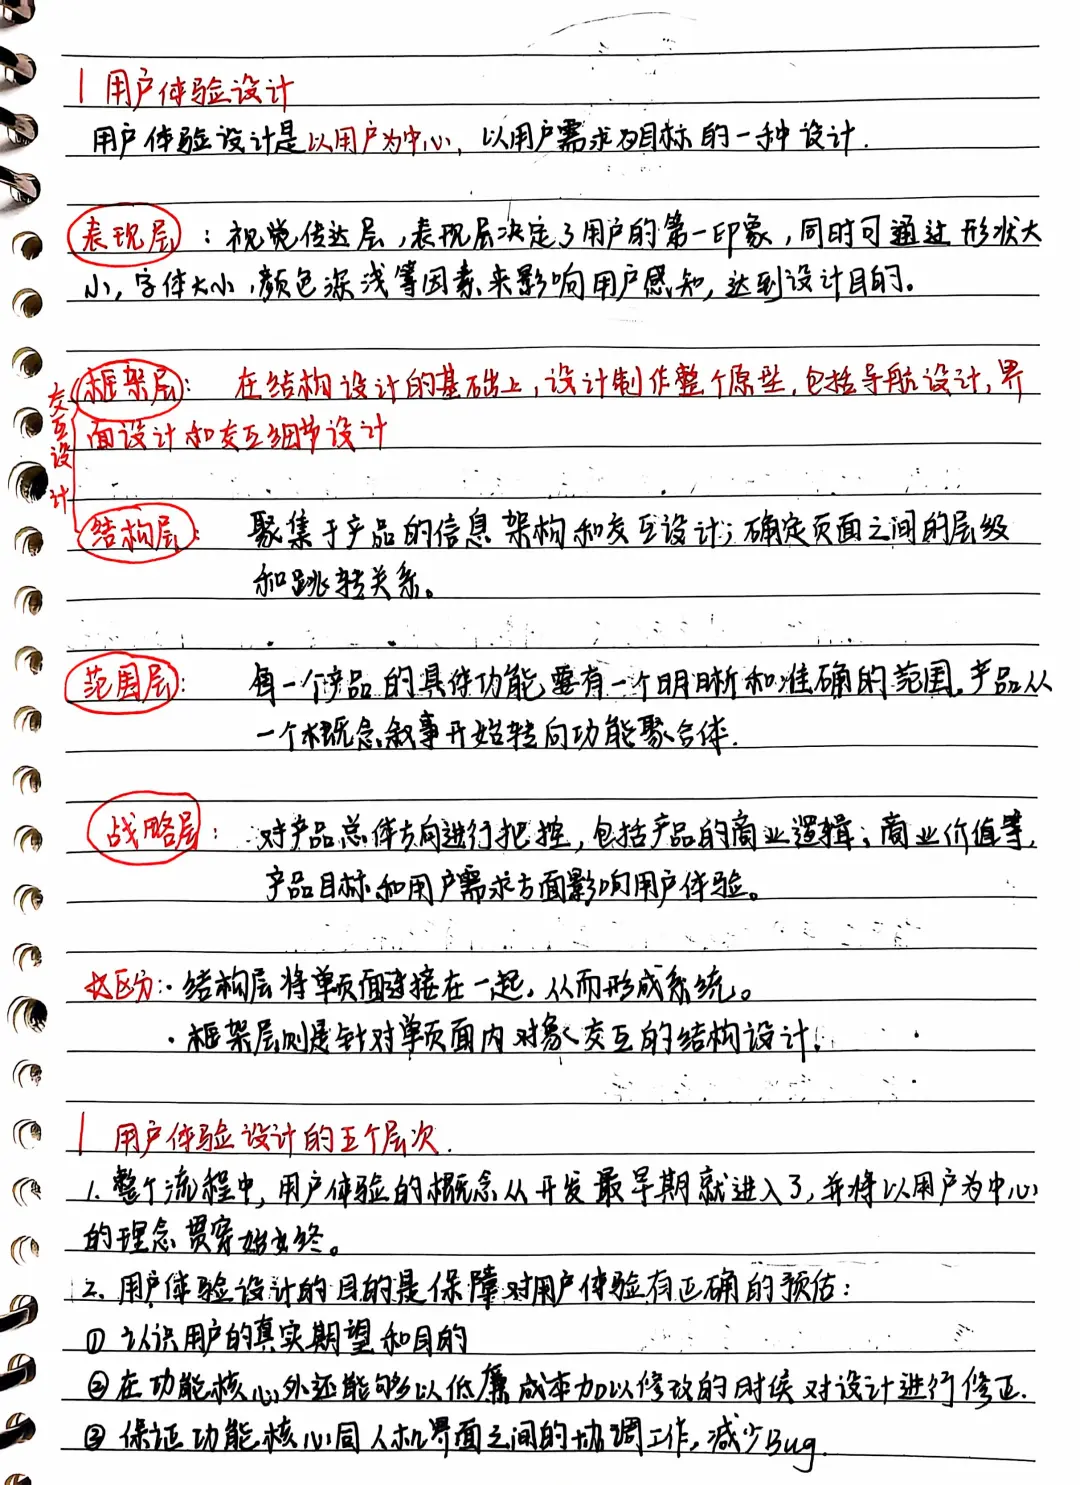 用户体验设计
用户体验设计是以用户为中心，以用户需求为目标的一种设计.
表现层：视觉传达层，表现层决定了用户的第一印象，同时可通过形状大
小，字体大小，颜色深浅等因素来影响用户感知，达到设计目的。
交互设计
框架层：在结构设计的基础上，设计制作整个原型，包括导航设计，界
面设计和交互细节设计
结构层：聚集于产品的信息架构和交互设计；确定页面之间的层级
和跳转关系。
范围层：每一个产品的具体功能要有一个明晰和准确的范围。产品从
一个概念叙事开始转向功能聚合体.
战略层：对产品总体方向进行把控，包括产品的商业逻辑；商业价值等，
产品目标和用户需求方面影响用户体验。
区分：·结构层将单页面连接在一起，从而形成系统。
·框架层则是针对单页面内对象交互的结构设计；
用户体验设计的五个层次.
1. 整个流程中，用户体验的概念从开发最早期就进入了，并将以用户为中心
的理念贯穿始终。
2. 用户体验设计的目的是保障对用户体验有正确的预估：
① 认识用户的真实期望和目的
② 在功能核心外还能够以低廉成本加以修改的时候对设计进行修正.
③ 保证功能核心同人机界面之间的协调工作，减少Bug.